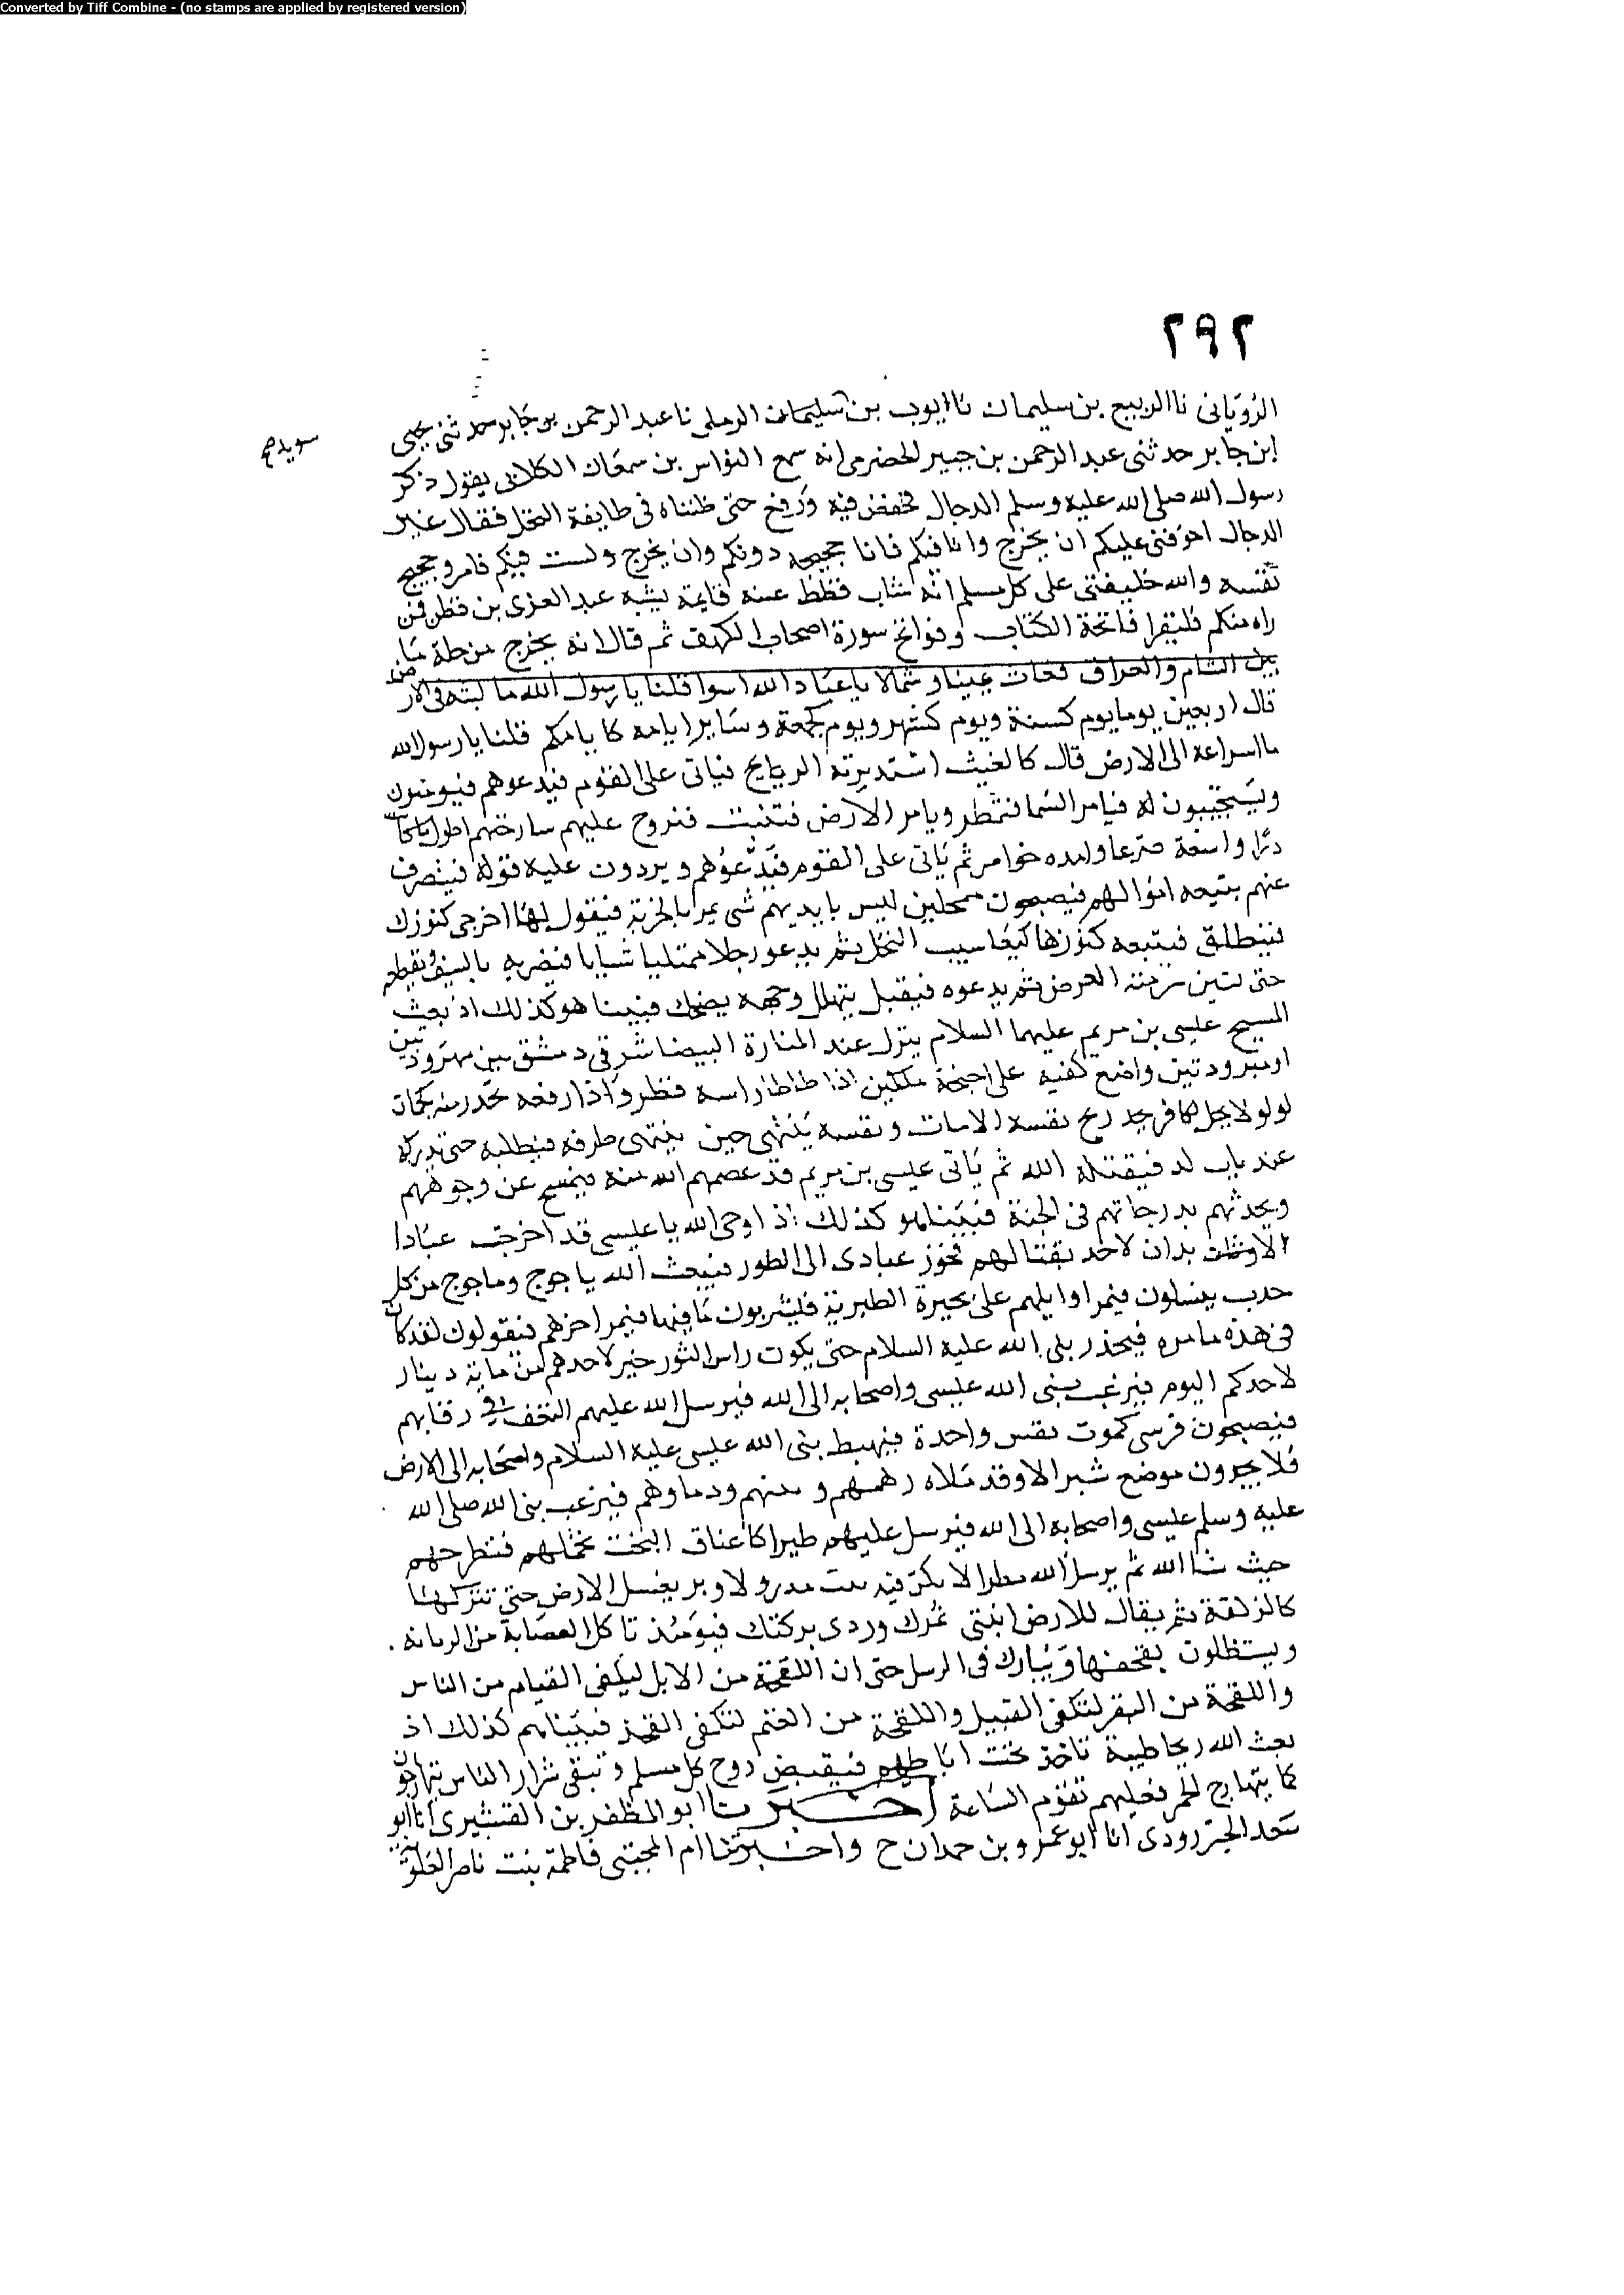 Converted by Tiff Combine - (no stamps are applied by registered version)
٢٩٢
الرويانى نا الربيع بن سليمان نا ايوب بن سليمان الرملى نا عبد الرحمن بن جابر حدثنى يحيى
سويد صح
ابن جابر حدثنى عبد الرحمن بن جبير الحضرمى انه سمع النواس بن سمعان الكلابى يقول ذكر
رسول الله صلى الله عليه وسلم الدجال فخفض فيه ورفع حتى ظنناه فى طايفة النخل فقال غير
الدجال اخوفنى عليكم ان يخرج وانا فيكم فانا حجيجه دونكم وان يخرج ولست فيكم فامرو حجيج
نفسه والله خليفتى على كل مسلم انه شاب قطط عينه قايمة يشبه عبد العزى بن قطن فمن
راه منكم فليقرا فاتحة الكتاب وفواتح سورة اصحاب الكهف ثم قال انه يخرج من حلة ما
بين الشام والعراق فعاث يمينا وشمالا يا عباد الله قلنا يا رسول الله ما لبثه فى الارض
قال اربعين يوما يوم كسنة ويوم كشهر ويوم كجمعة وساير ايامه كايامكم قلنا يا رسول الله
ما اسراعه الى الارض قال كالغيث استدبرته الريح فياتى على القوم فيدعوهم فيومنون
ويستجيبون له فيامر السما فتمطر ويامر الارض فتنبت فتروح عليهم سارحتهم اطول ما كانت
درا واسبغه ضرعا وامده خواصر ثم ياتى على القوم فيدعوهم ويردون عليه قوله فينصرف
عنهم بتبعه اموالهم فيصبحون ممحلين ليس بايديهم شى يمر بالخربة فيقول لها اخرجى كنوزك
فينطلق فيتبعه كنوزها كيعاسيب النحل ثم يدعو رجلا ممتليا شبابا فيضربه بالسيف ويقطعه
حتى الغرض ثم يدعوه فيقبل يتهلل وجهه يضحك فبينا هو كذلك اذ بعث
المسيح عيسى بن مريم عليهما السلام ينزل عند المنارة البيضا شرقى دمشق بين مهرودتين
او مبرودتين واضع كفيه على اجنحة ملكين اذا طاطا راسه قطر واذا رفعه تحدر منه جمان
لولو لا يحل لكافر يجد ريح نفسه الا مات ونفسه ينتهى حين ينتهى طرفه فيطلبه حتى يدركه
عند باب لد فيقتله الله ثم ياتى عيسى بن مريم قد عصمهم الله منه فيمسح عن وجوههم
ويحدثهم بدرجاتهم فى الجنة فبينا هو كذلك اذ اوحى الله يا عيسى قد اخرجت عبادا
بدان لاحد بقتالهم فحوز عبادى الى الطور فيبعث الله ياجوج وماجوج من كل
حدب ينسلون فيمر اوايلهم على بحيرة الطبرية فيشربون ما فيها فيمر اخرهم فيقولون لقد كان
فى هذه ما مره نبى الله عليه السلام حتى يكون راس الثور خير لاحدهم من ماية دينار
لاحدكم اليوم فيرغب نبى الله عيسى واصحابه الى الله فيرسل الله عليهم النغف فى رقابهم
فيصبحون فرسى كموت نفس واحدة فيهبط نبى الله عيسى عليه السلام واصحابه الى الارض
فلا يجدون موضع شبر الا وقد ملاه زهمهم ودماوهم فيرغب نبى الله صلى الله
عليه وسلم عيسى واصحابه الى الله فيرسل عليهم طيرا كاعناق البخت تحملهم فتطرحهم
حيث شا الله ثم يرسل الله مطرا لا يكن فيه بيت مدر ولا وبر يغسل الارض حتى تتركها
كالزلفة ثم يقال للارض انبتى ثمرك وردى بركتك فيومئذ تاكل العصابة من الرمانه
ويستظلون بقحفها ويبارك فى الرسل حتى ان اللقحة من الابل ليكفى الفيام من الناس
واللقحة من البقر لتكفى القبيل واللقحة من الغنم لتكفى الفخذ فبينا هم كذلك اذ
بعث الله ريحا طيبة تاخذ تحت اباطهم فيقبض روح كل مسلم وتبقى شرار الناس يتهارجون
كما يتهارج الحمر فعليهم تقوم الساعة اخبرنا ابو المظفر بن القشيرى انا ابو
سعد الجنزرودى انا ابو عمرو بن حمدان ح واخبرتنا ام المجتبى فاطمة بنت ناصر العلوية